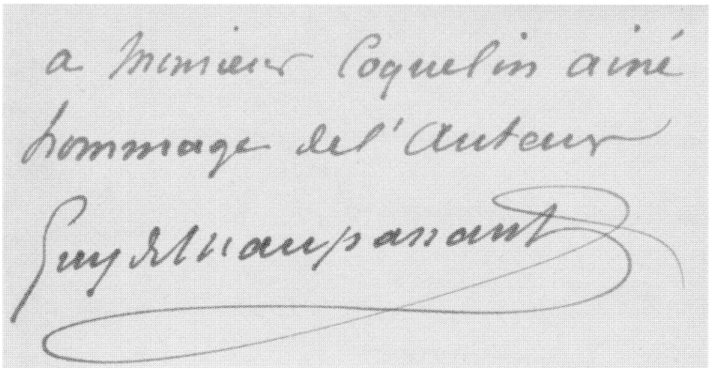 a Monsieur Coquelin ainé
hommage de l'Auteur
Guy de Maupassant